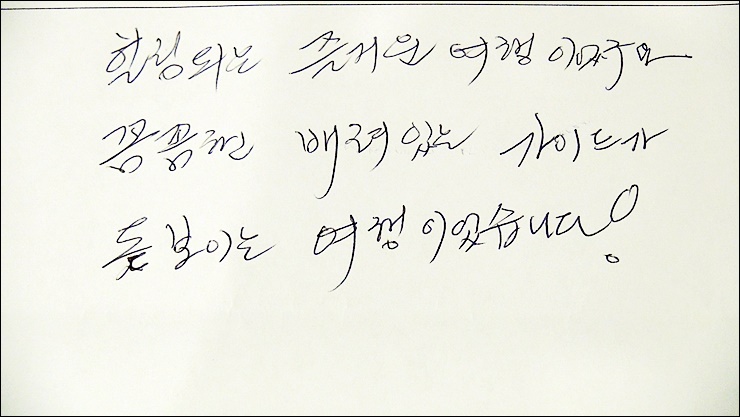 힐링되는 즐거운 여행이었구요
꼼꼼하고 배려있는 가이드가
돋보이는 여행이었습니다!